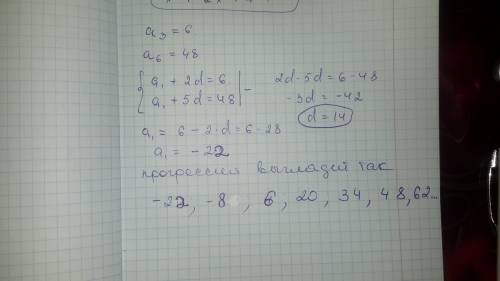 a₃ = 6
a₆ = 48
{ a₁ + 2d = 6
a₁ + 5d = 48 | -
2d - 5d = 6 - 48
-3d = -42
d = 14
a₁ = 6 - 2·d = 6 - 28
a₁ = -22
прогрессия выглядит так
-22, -8, 6, 20, 34, 48, 62...